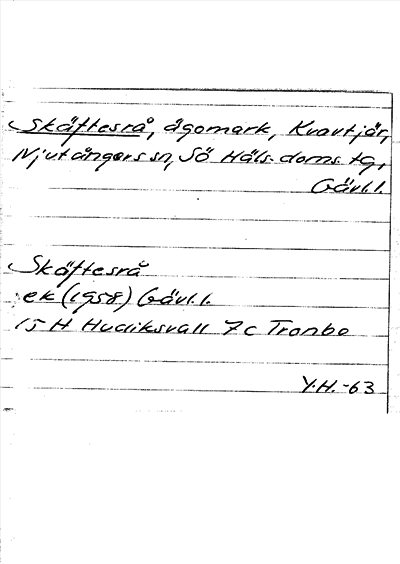 Skäftesrå, ägomark, Kravtjär,
Njutångers sn, Sö Häls. doms. tg,
Gävl.l.
Skäftesrå
ek (1958) Gävl.l.
15 H Hudiksvall 7c Tronbo
Y.H. -63